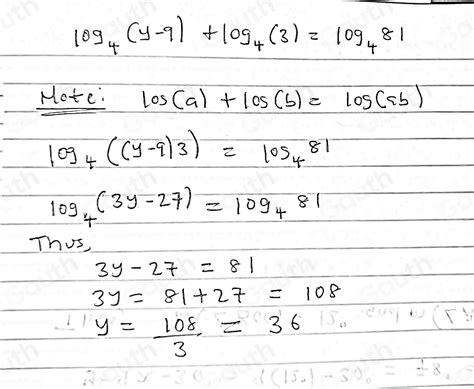 log₄(y-9) + log₄(3) = log₄81
Note: log(a) + log(b) = log(ab)
log₄((y-9)3) = log₄81
log₄(3y-27) = log₄81
Thus,
3y - 27 = 81
3y = 81 + 27 = 108
y = 108/3 = 36